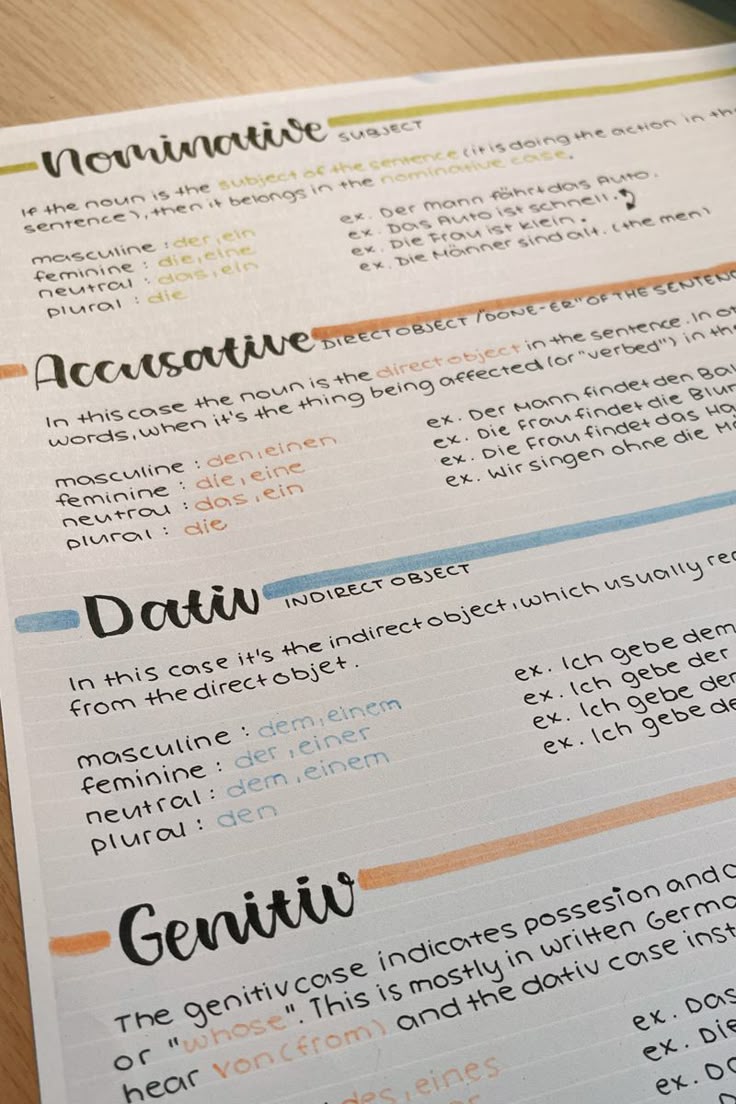 Nominative SUBJECT
If the noun is the subject of the sentence (it is doing the action in
sentence), then it belongs in the nominative case.
masculine : der, ein
feminine : die, eine
neutral : das, ein
plural : die
ex. Der Mann fährt das Auto.
ex. Das Auto ist schnell.
ex. Die Frau ist klein.
ex. Die Männer sind alt. (the men)
Accusative DIRECT OBJECT / "DONE-ER" OF THE
In this case the noun is the direct object in the sentence. In
words, when it's the thing being affected (or "verbed") in
masculine : den, einen
feminine : die, eine
neutral : das, ein
plural : die
ex. Der Mann findet den
ex. Die Frau findet die
ex. Die Frau findet das
ex. Wir singen ohne die
Dativ INDIRECT OBJECT
In this case it's the indirect object, which usually
from the direct objet.
masculine : dem, einem
feminine : der, einer
neutral : dem, einem
plural : den
ex. Ich gebe dem
ex. Ich gebe der
ex. Ich gebe
ex. Ich gebe
Genitiv
The genitiv case indicates possesion and
or "whose". This is mostly in written
hear von (from) and the dativ case
des, eines
ex. Das
ex. Die
ex.